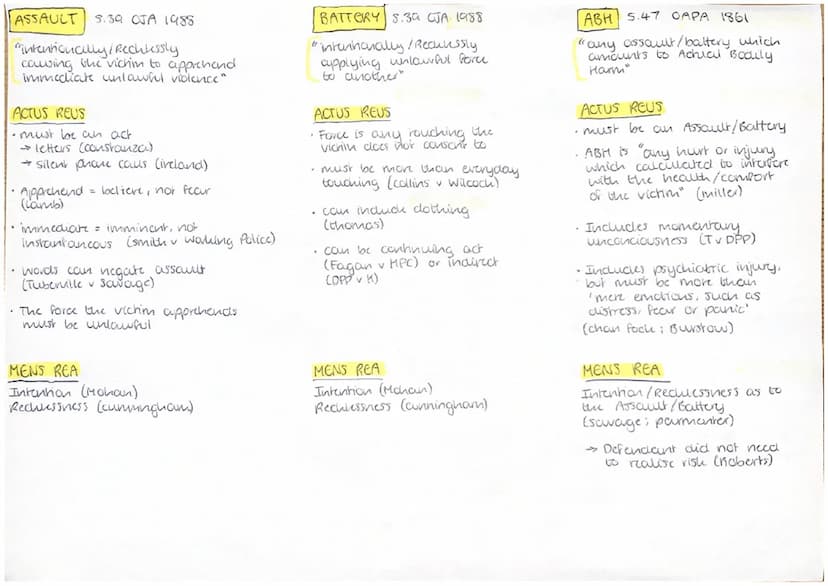 ASSAULT S.39 CJA 1988
"intentionally/Recklessly
causing the victim to apprehend
immediate unlawful violence"
ACTUS REUS
· must be an act
→ letters (constanza)
→ silent phone calls (ireland)
· Apprehend = believe, not fear
(Lamb)
· immediate = imminent, not
instantaneous (Smith v Working Police)
· words can negate assault
(Tuberville v Savage)
· The force the victim apprehends
must be unlawful
MENS REA
Intention (Mohan)
Recklessness (cunningham)
BATTERY S.39 CJA 1988
"intentionally/Recklessly
applying unlawful force
to another"
ACTUS REUS
· Force is any touching the
victim does not consent to
· must be more than everyday
touching (collins v Wilcock)
· can include clothing
(thomas)
· can be continuing act
(Fagan v MPC) or indirect
(DPP v K)
MENS REA
Intention (Mohan)
Recklessness (cunningham)
ABH S.47 OAPA 1861
"any assault/battery which
amounts to Actual Bodily
Harm"
ACTUS REUS
· must be an Assault/Battery
· ABH is "any hurt or injury
which calculated to interfere
with the health/comfort
of the victim" (miller)
· Includes momentary
unconciousness (T v DPP)
· Includes psychiatric injury,
but must be more than
'mere emotions, such as
distress, fear or panic'
(chan fook; Burstow)
MENS REA
Intention/Recklessness as to
the Assault/Battery
(savage; parmenter)
→ Defendant did not need
to realise risk (Roberts)